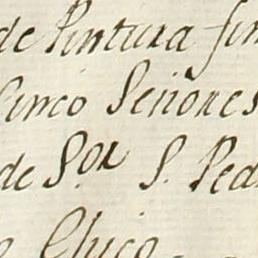 de Pintura fin
Cinco Señores
de S.or S. Ped
Chico